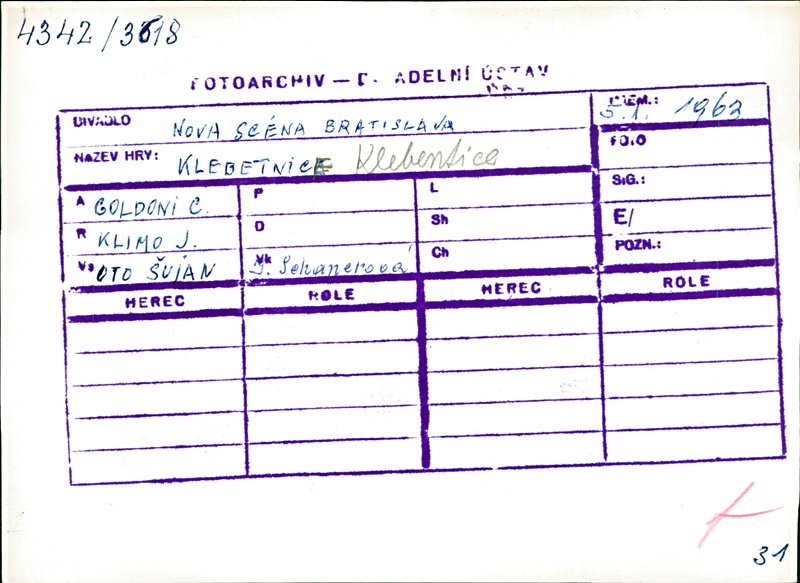 4342/3618
FOTOARCHIV — D. ADELNÍ ÚSTAV
DIVADLO NOVA SCÉNA BRATISLAVA
PREM.: 5.1. 1963
NAZEV HRY: KLEBETNICE Klebentice
FOTO
A GOLDONI C.
P
L
SIG.:
R KLIMO J.
D
Sh
E/
Vs OTO ŠUJAN
Vk
Ch
POZN.:
HEREC ROLE HEREC ROLE
31